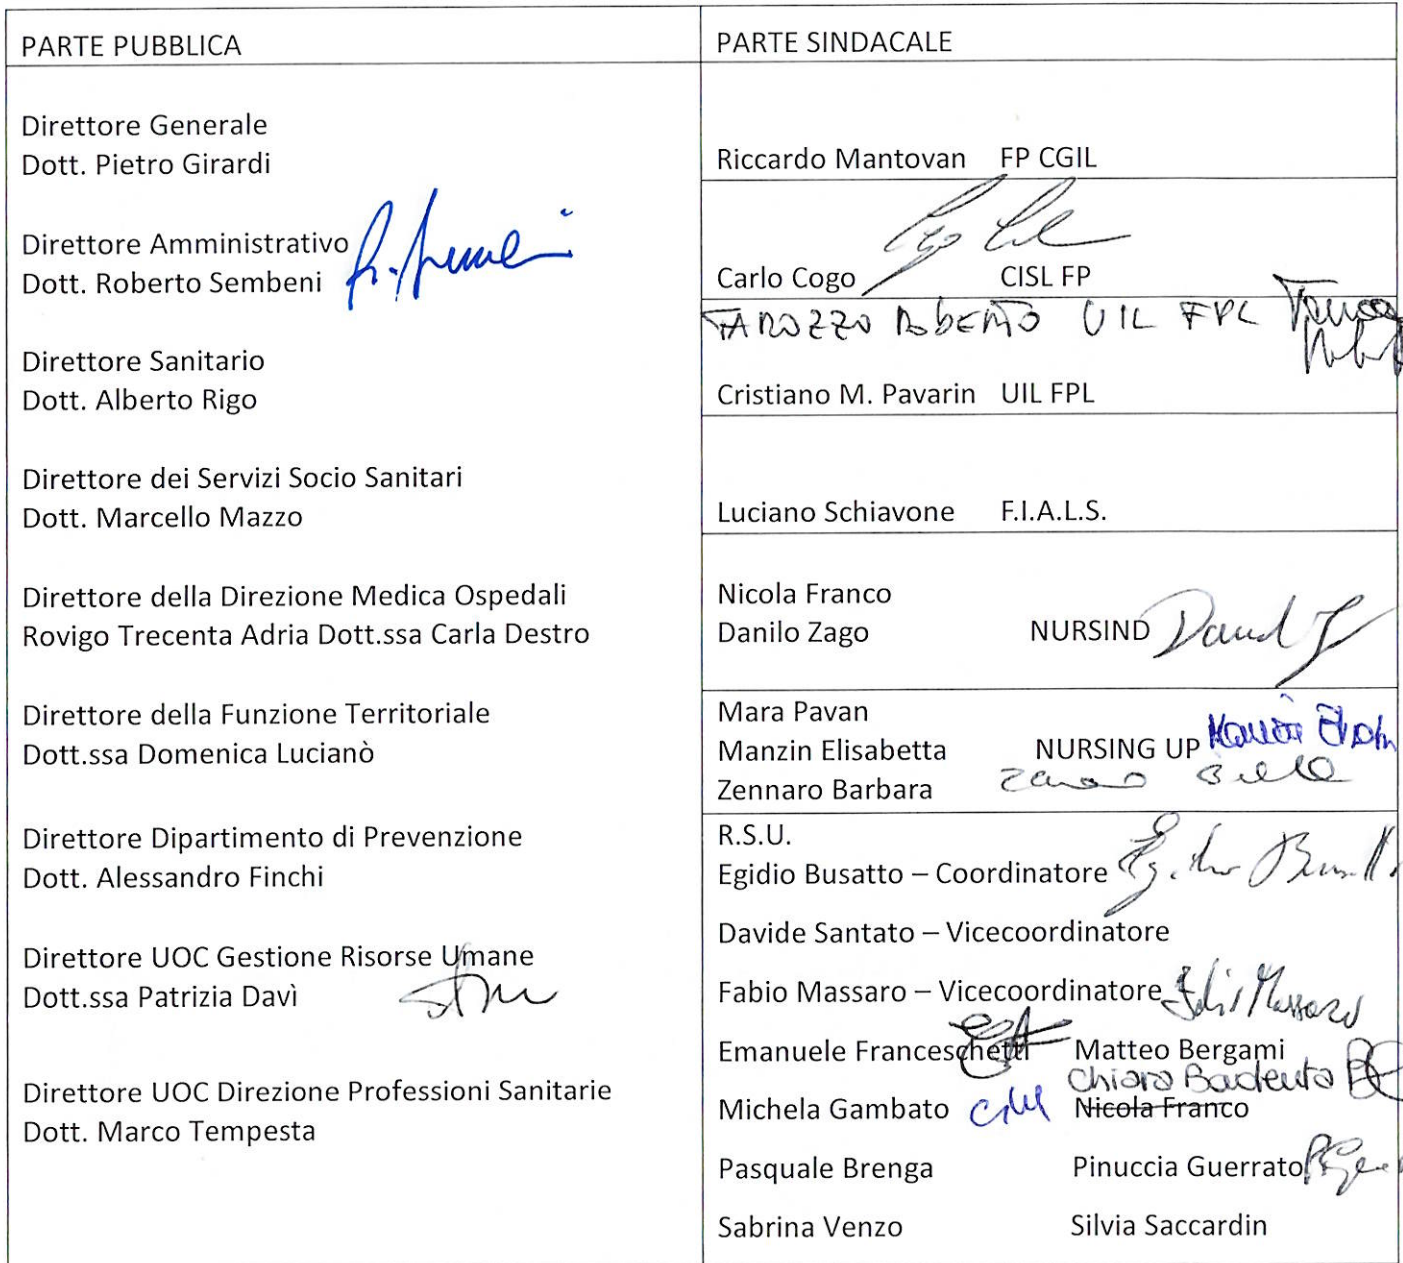 PARTE PUBBLICA
Direttore Generale
Dott. Pietro Girardi
Direttore Amministrativo
Dott. Roberto Sembeni
Direttore Sanitario
Dott. Alberto Rigo
Direttore dei Servizi Socio Sanitari
Dott. Marcello Mazzo
Direttore della Direzione Medica Ospedali
Rovigo Trecenta Adria Dott.ssa Carla Destro
Direttore della Funzione Territoriale
Dott.ssa Domenica Lucianò
Direttore Dipartimento di Prevenzione
Dott. Alessandro Finchi
Direttore UOC Gestione Risorse Umane
Dott.ssa Patrizia Davì
Direttore UOC Direzione Professioni Sanitarie
Dott. Marco Tempesta
PARTE SINDACALE
Riccardo Mantovan FP CGIL
Carlo Cogo CISL FP
TAROZZO ROBERTO UIL FPL
Cristiano M. Pavarin UIL FPL
Luciano Schiavone F.I.A.L.S.
Nicola Franco
Danilo Zago NURSIND
Mara Pavan
Manzin Elisabetta NURSING UP
Zennaro Barbara
R.S.U.
Egidio Busatto – Coordinatore
Davide Santato – Vicecoordinatore
Fabio Massaro – Vicecoordinatore Fabio Massaro
Emanuele Franceschetti Matteo Bergami
Chiara
Michela Gambato Nicola Franco
Pasquale Brenga Pinuccia Guerrato
Sabrina Venzo Silvia Saccardin